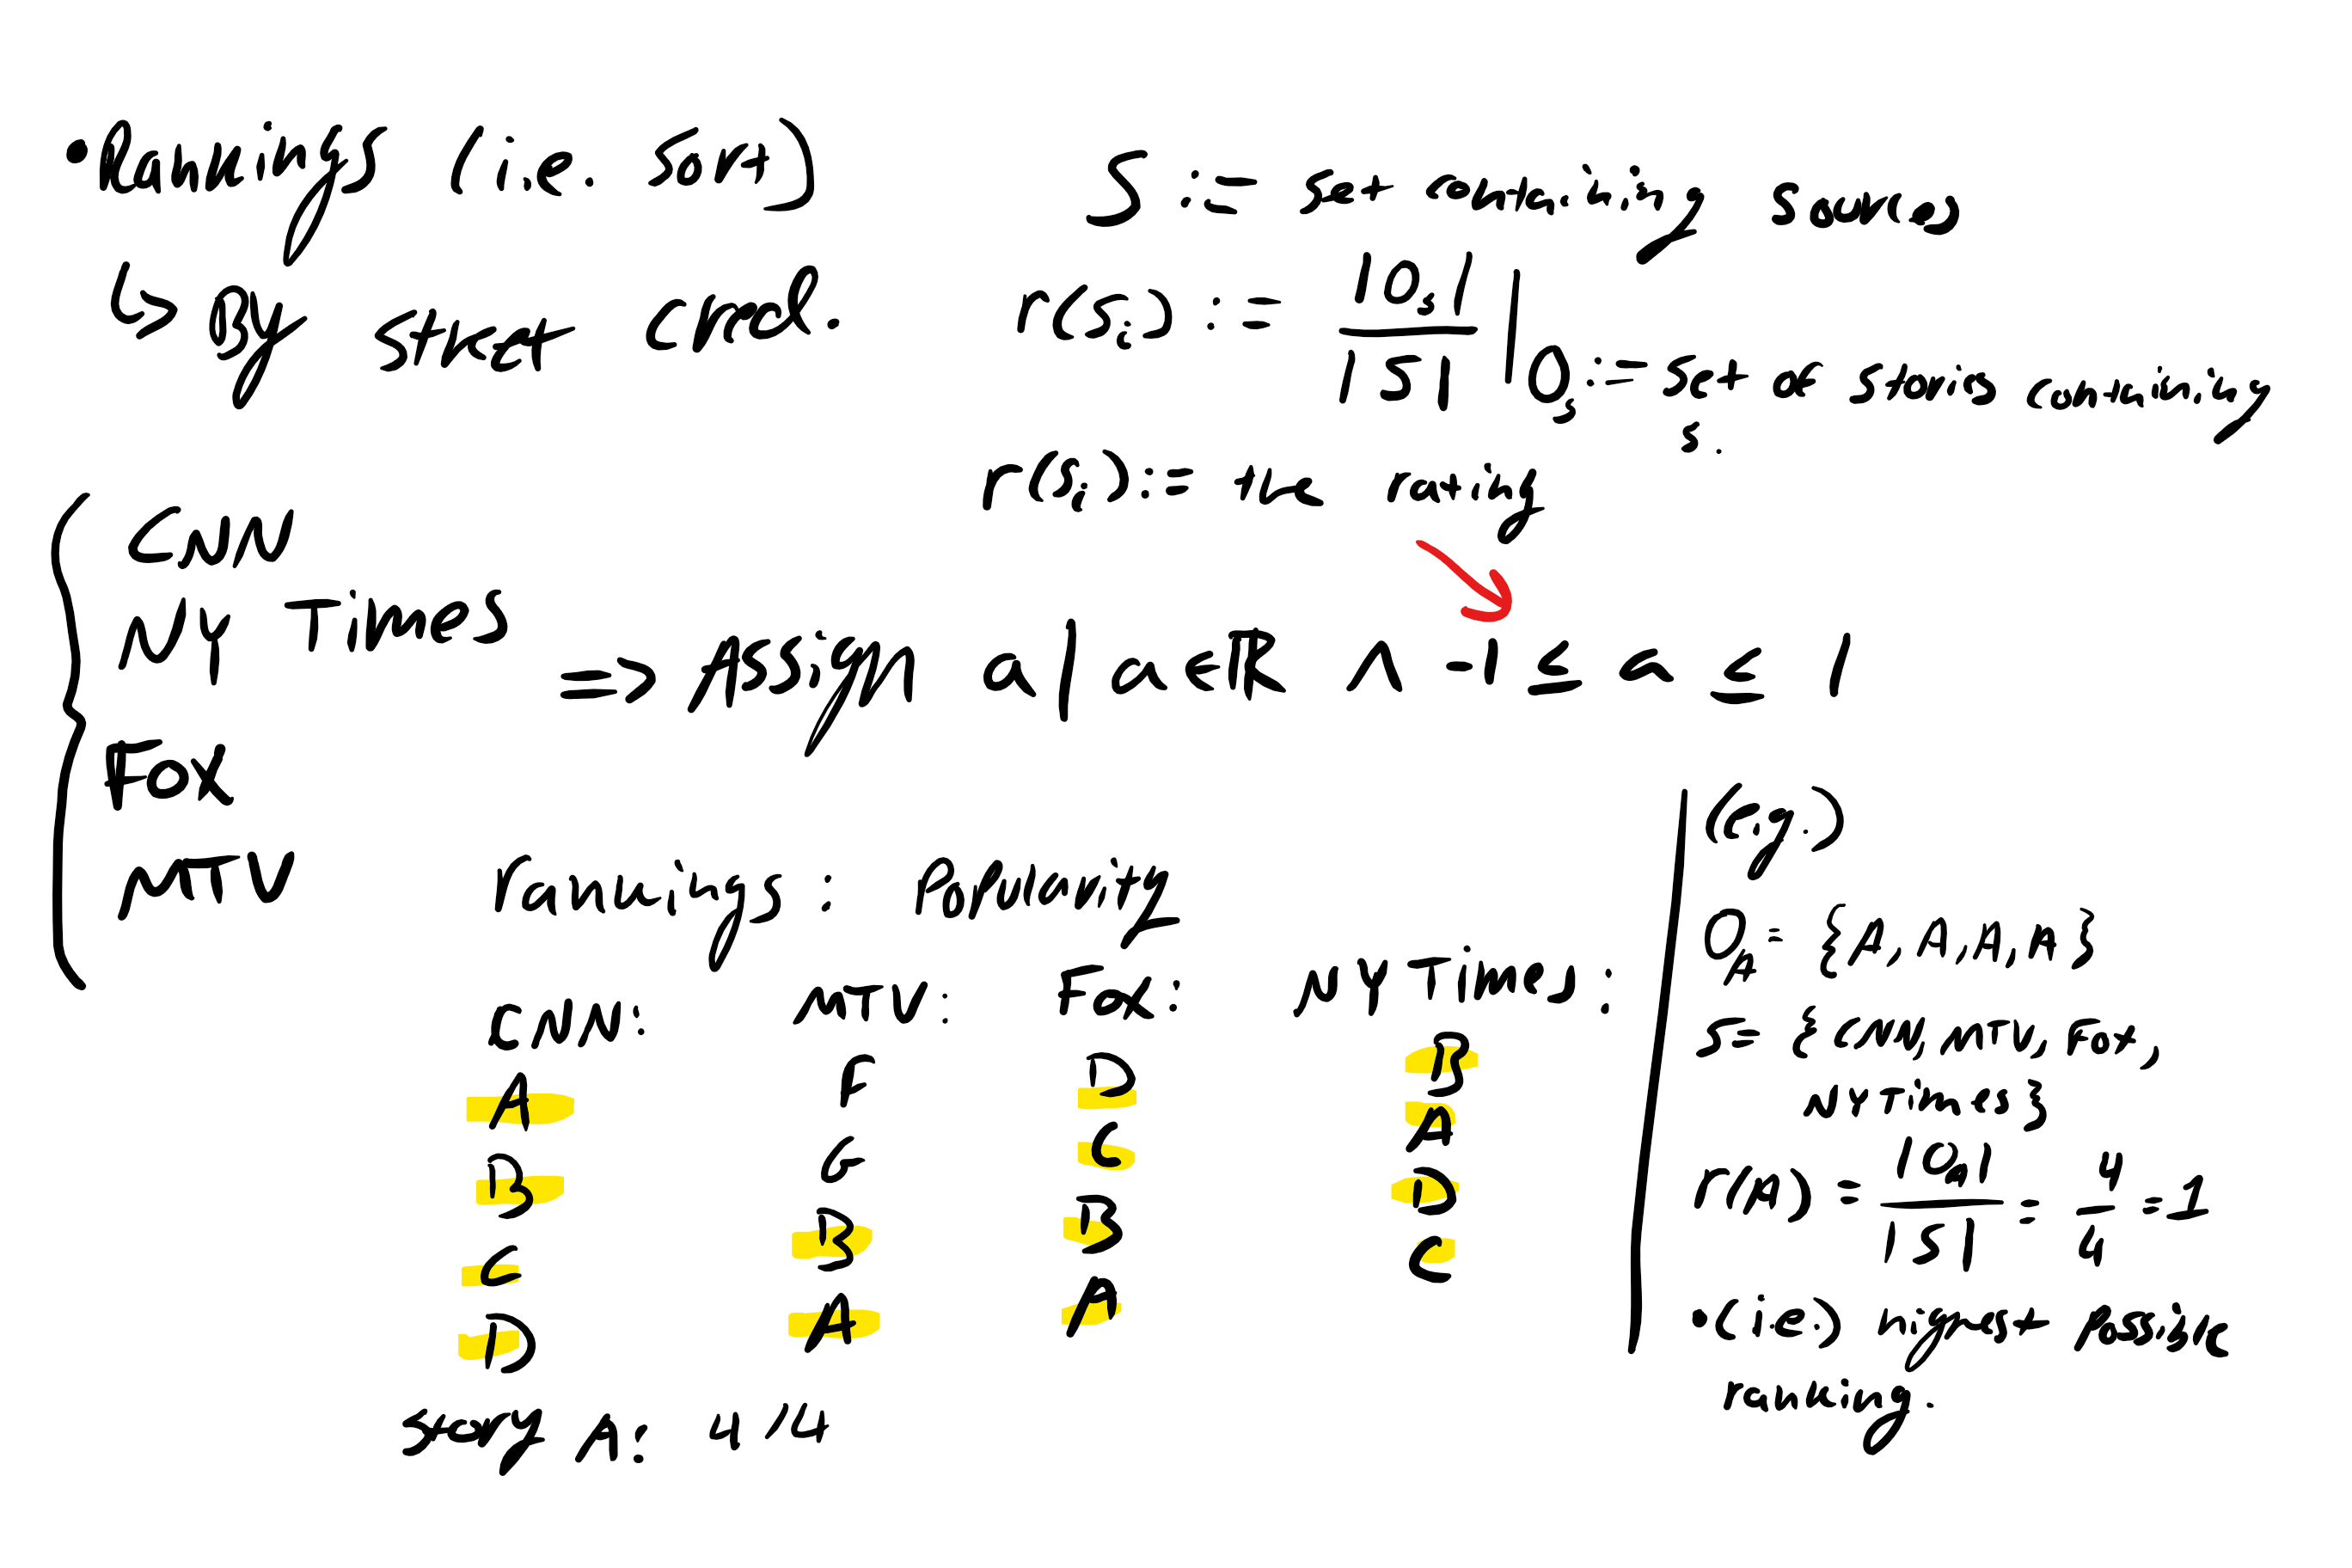 •Rankings (i.e. Sort)
↳ By street cred.
S := set containing sources
r(sᵢ) := |Oₛ| / |S| | Oₛ := set of stories containing
s.
r(sᵢ) := the rating
CNN
NY Times
Fox
MTV
=> Assign a | a ∈ ℝ ∧ -1 ≤ a ≤ 1
rankings : Popularity
CNN:
A
B
C
D
MTV:
F
G
B
A
Fox:
D
C
B
A
NY Times:
B
A
D
C
Story A: 4/4
(e.g.)
O_A = {A, A, A, A}
S = {CNN, MTV, Fox,
NY Times}
r(A) = |O_A| / |S| = 4/4 = 1
•(i.e.) highest possible
ranking.